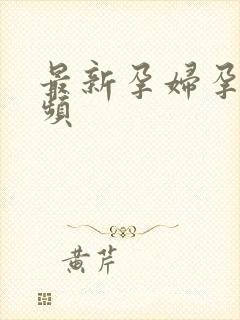 最新孕婦孕
頻
黄芹